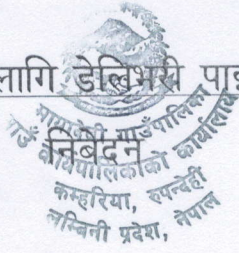 लागि डेलिभरी पाइ
निबेदन
मायादेवी गाउँपालिका
गाउँ कार्यपालिकाको कार्यालय
कम्हरिया, रुपन्देही
लुम्बिनी प्रदेश, नेपाल